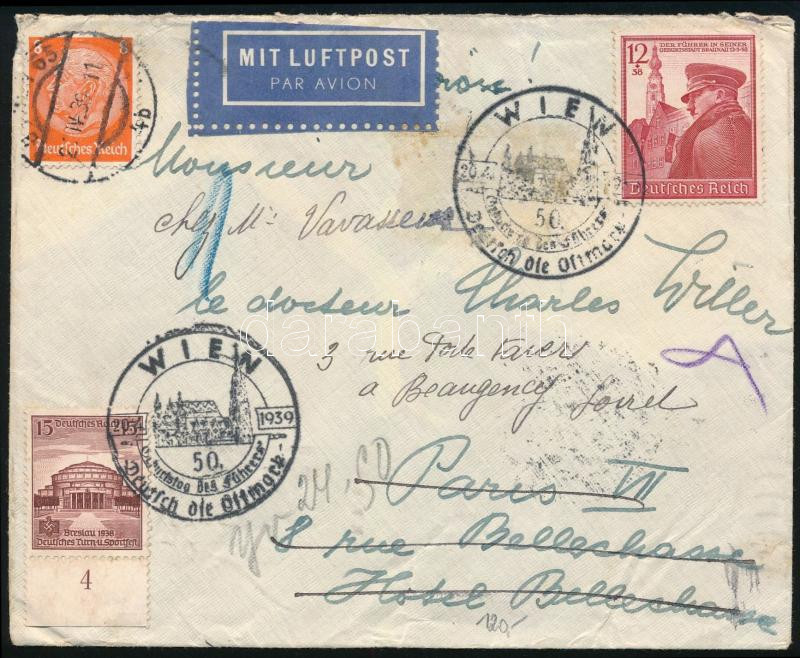 8 8
Deutsches Reich
MIT LUFTPOST
PAR AVION
12
+38
DER FÜHRER IN SEINER
GEBURTSSTADT BRAUNAU
Deutsches Reich
WIEN
50.
Geburtstag des Führers
Deutsch die Ostmark
Monsieur
chez Mr Vavasseur
le docteur Charles Willer
darabanth
3 rue
a Beaugency Loiret
WIEN
20.4. 1939
50.
Geburtstag des Führers
Deutsch die Ostmark
15 Deutsches Reich
Breslau 1938
Deutsches Turn-u.Sportfest
4
24.50
Paris VII
8 rue Bellechasse
Hotel Bellechasse
120,-